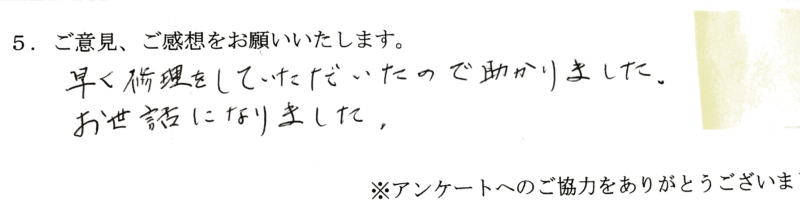 5．ご意見、ご感想をお願いいたします。
早く修理をしていただいたので助かりました。
お世話になりました。
※アンケートへのご協力をありがとうございま